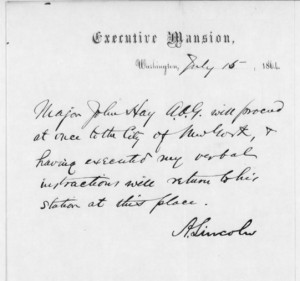 Executive Mansion,
Washington, July 15, 1864.
Major John Hay A.A.G. will proceed
at once to the City of New-York, &
having executed my verbal
instructions will return to his
station at this place.
A. Lincoln